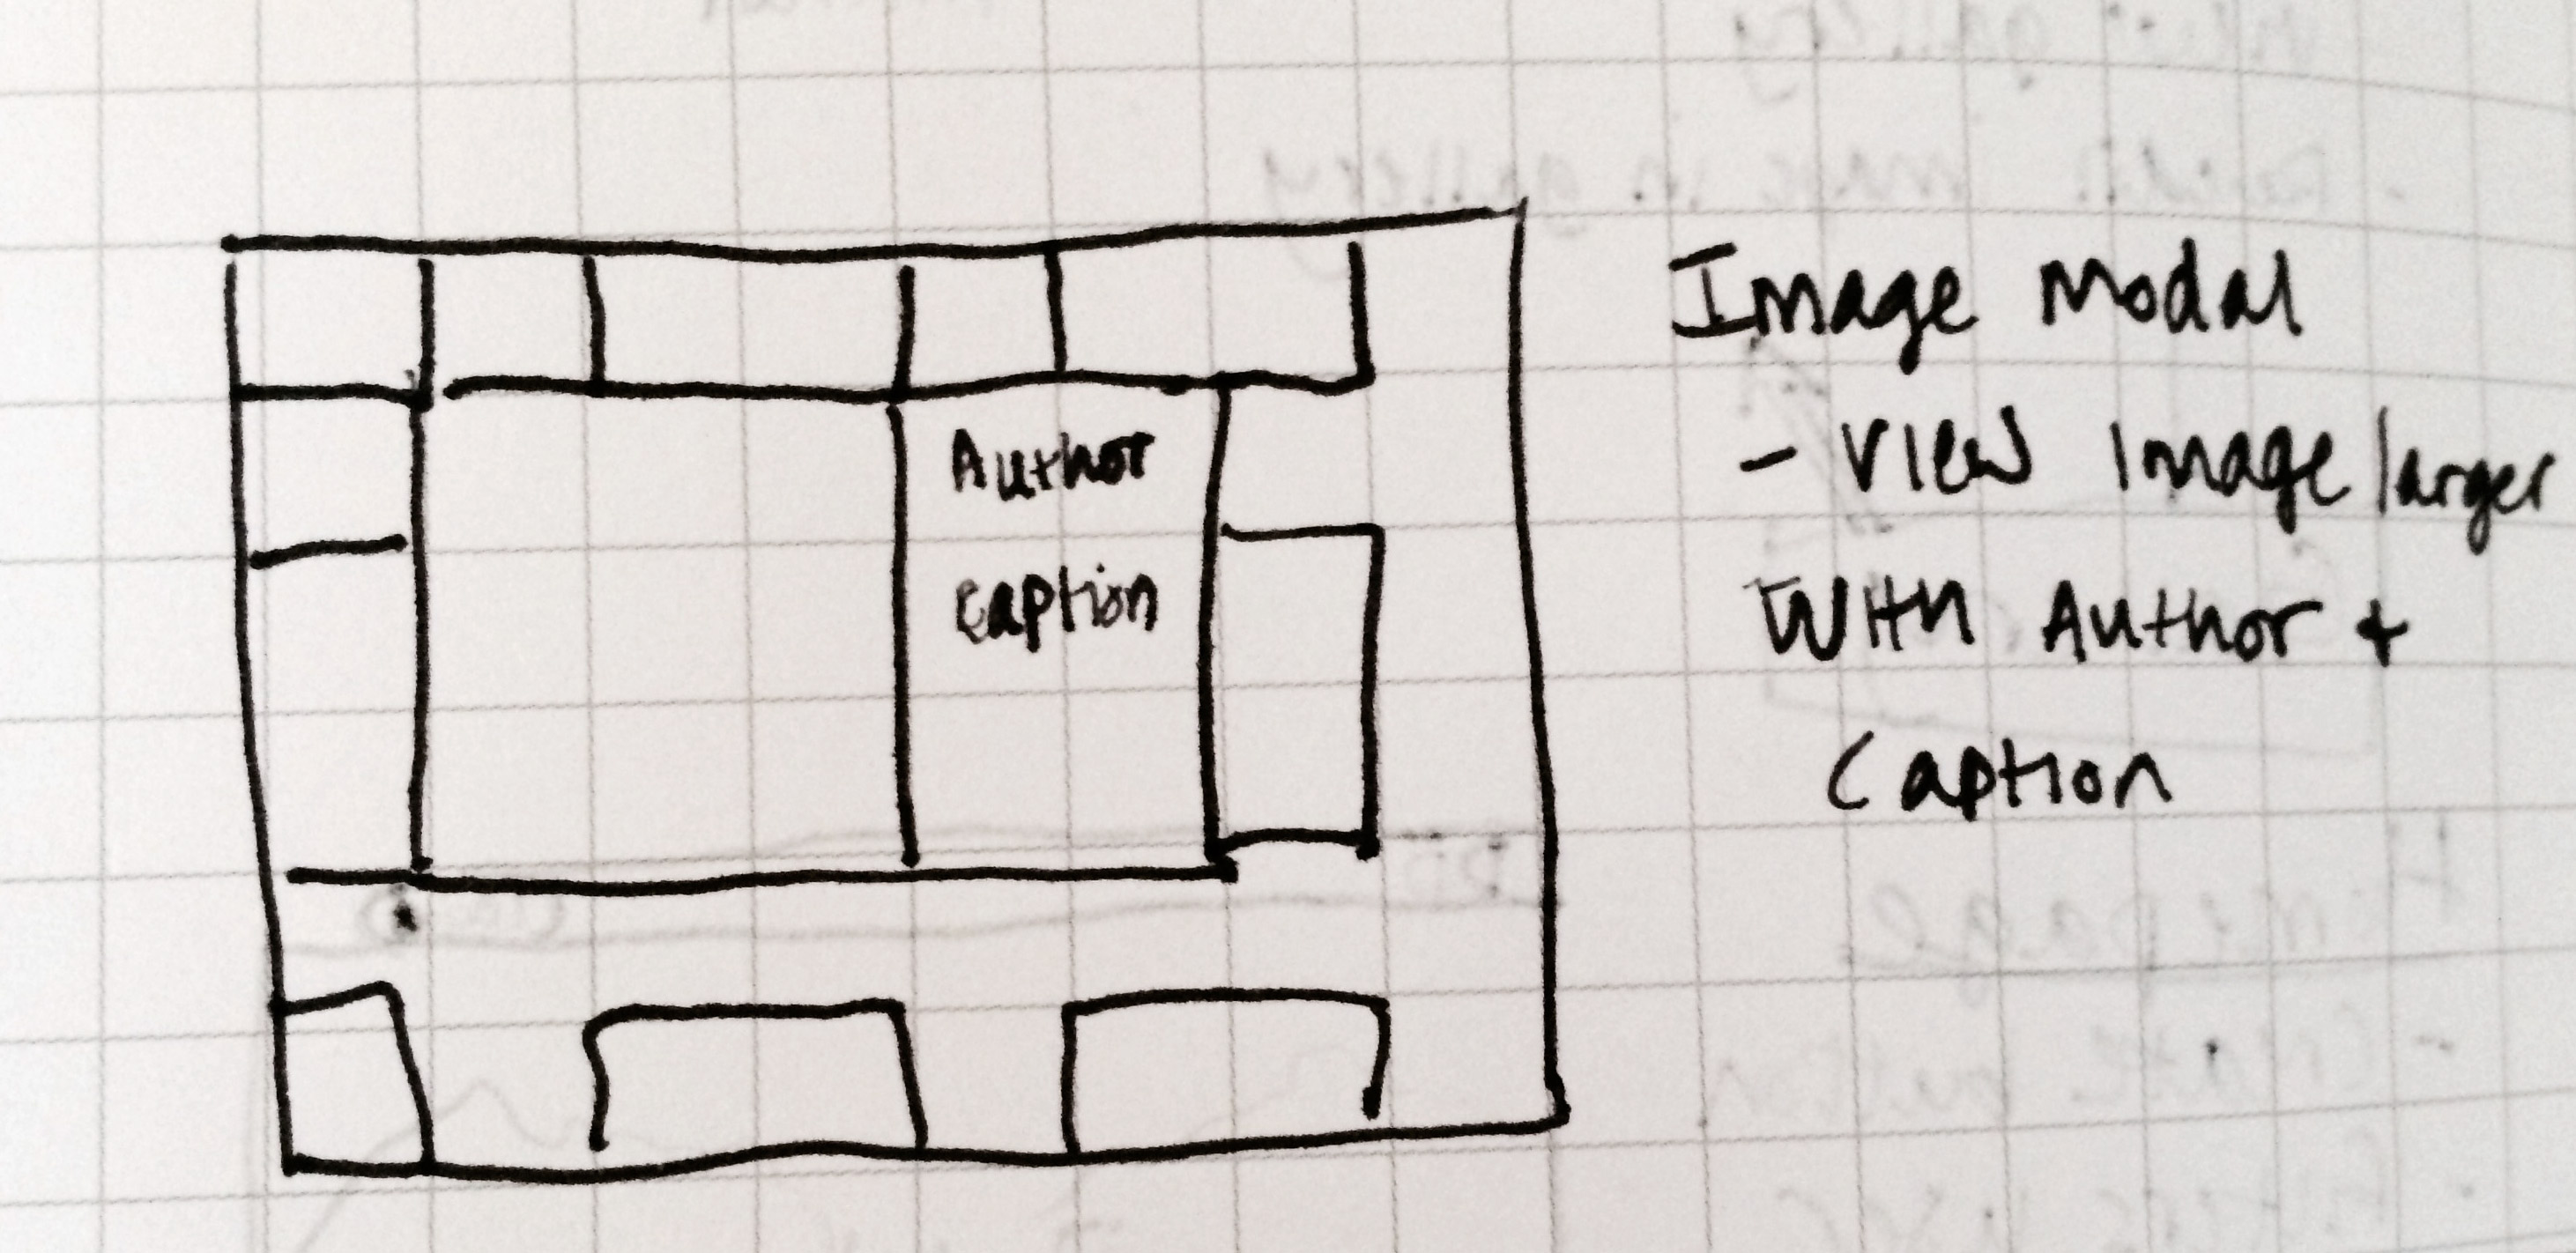 Author
caption
Image Modal
- View Image larger
With Author +
Caption